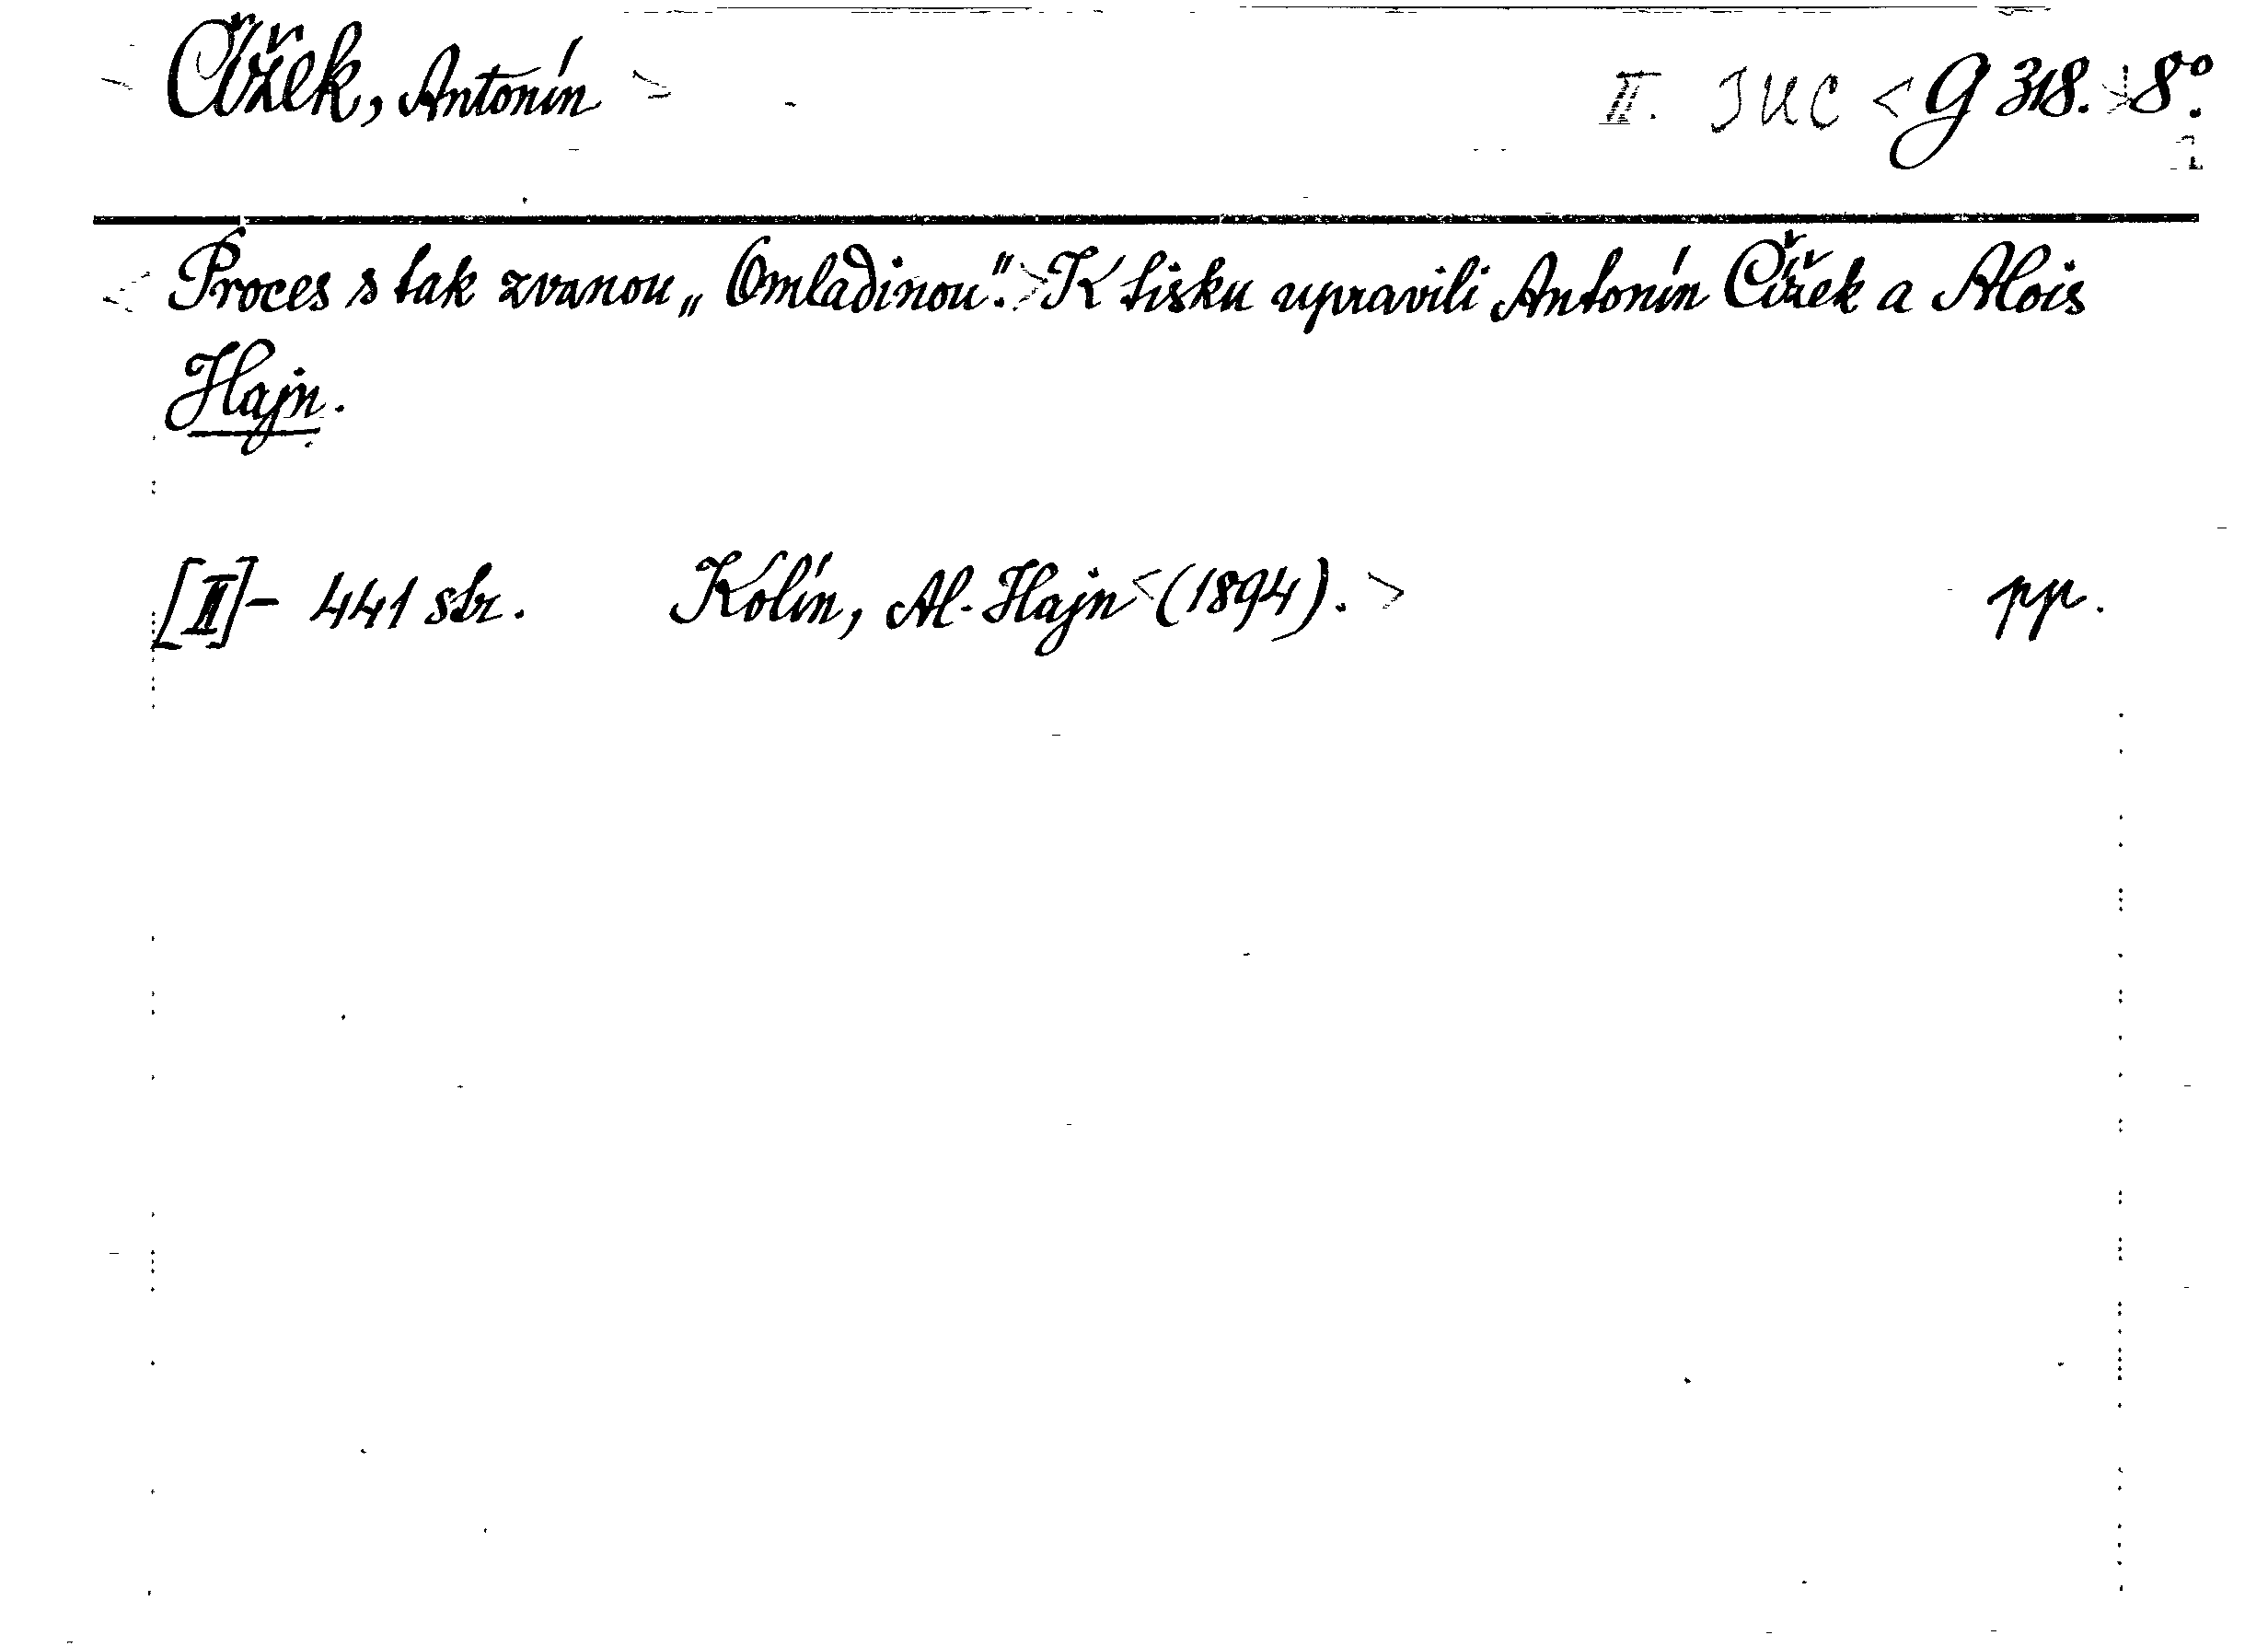 Čížek, Antonín > II. JUC < G 318. > 8°.
< Proces s tak zvanou „Omladinou“. > K tisku upravili Antonín Čížek a Alois
Hajn.
[II] - 441 str. Kolín, Al. Hajn < (1894). > pp.